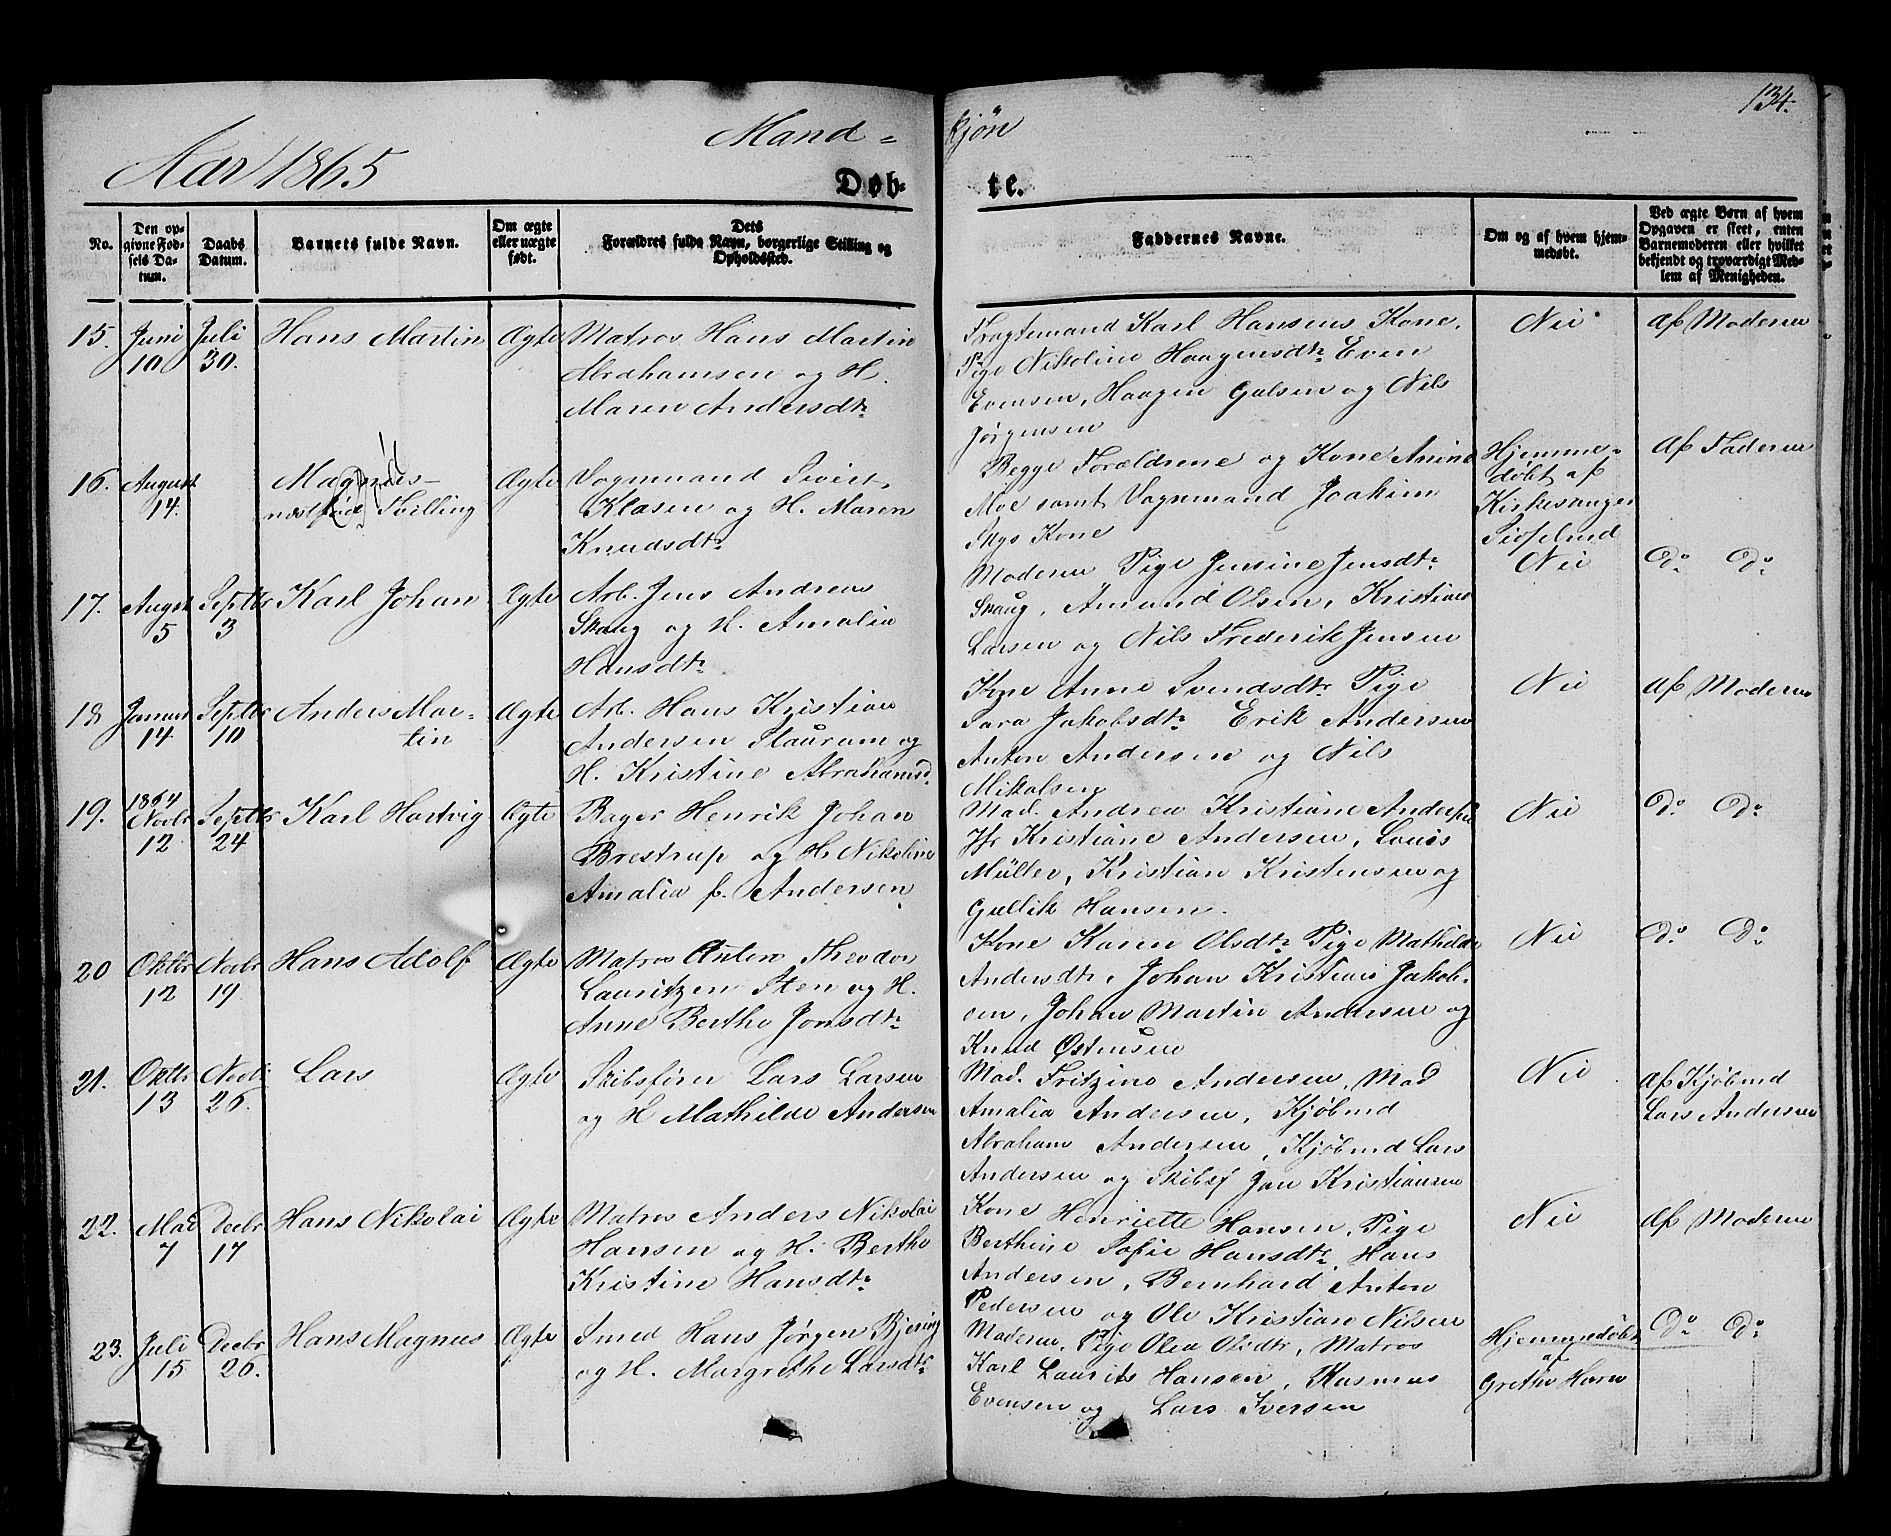 134.
Mand = kjøn
Aar 1865
Døb- te.
No.
Den op-
givne Fød-
sels Da-
tum.
Daabs
Datum.
Barnets fulde Navn.
Om ægte
eller uægte
født.
Dets
Forældres fulde Navn, borgerlige Stilling og
Opholdssted.
Faddernes Navne.
Om og af hvem hjem-
medøbt.
Ved ægte Børn af hvem
Opgaven er skeet, enten
Barnemoderen eller hvilket
bekjendt og troværdigt Med-
lem af Menigheden.
15.
Juni
10
Juli
30.
Hans Martin
Ægte
Matros Hans Martin
Abrahamsen og H.
Maren Andersdtr
Fragtemand Karl Hansens Kone,
Pige Nikoline Haagensdtr Even
Evensen, Haagen Gulsen og Nils
Jørgensen
Nei
af Moderen
16.
August
14.
Magnus
Ægte
Vognmand Sivert
Klasen og H. Maren
Knudsdtr
Begge Forældrene og Kone Anine
Moe samt Vognmand Joakim
Skys Kone
Hjemme-
døbt af
Kirkesanger
af Faderen
17.
Augst
5
Septbr
3
Karl Johan
Ægte
Arb. Jens Andreas
Skaug og H. Amalia
Hansdtr
Moderen, Pige Jensine Jensdtr
Skaug, Amund Olsen, Kristian
Larsen og Nils Frederik Jensen
Nei
Do Do
18
Januar
14
Septbr
10
Anders Mar-
tin
Ægte
Arb. Hans Kristian
Andersen Staurum og
H. Kristine Abrahamsd.
Kone Anne Svendsdtr Pige
Sara Jakobsdtr Erik Andersen
Anton Andersen og Nils
Mikalsen
Nei
af Moderen
19.
1864
Novbr
12
Septbr
24
Karl Hartvig
Ægte
Bager Henrik Johan
Brestrup og H. Nikoline
Amalia f. Andersen
Mad. Andrea Kristiane Andersen
Jfr Kristiane Andersen, Louis
Müller, Kristian Kristensen og
Gullik Hansen.
Nei
Do Do
20
Oktbr
12
Novbr
19.
Hans Adolf
Ægte
Matros Anton Theodor
Lauritzen Sten og H.
Anne Berthe Jonsdtr
Kone Karen Olsdtr Pige Mathilde
Andersdtr, Johan Kristian Jakob-
sen, Johan Martin Andersen og
Knud Østensen
Nei
Do Do
21.
Oktbr
13
Novbr
26.
Lars
Ægte
Skibsfører Lars Larsen
og H Mathilde Andersen
Mad. Fritzine Andersen, Mad
Amalia Andersen, Kjøbmd
Abraham Andersen, Kjøbmd Lars
Andersen og Skibsf Jan Kristiansen
Nei
af Kjøbmd
Lars Andersen
22.
Mai
7
Decbr
17
Hans Nikolai
Ægte
Matros Anders Nikolai
Hansen og H. Berthe
Kristine Hansdtr
Kone Henriette Hansen, Pige
Berthine Sofie Hansdtr, Hans
Andersen, Bernhard Anton
Pedersen og Ole Kristian Nilsen
Nei
af Moderen
23.
Juli
15
Decbr
26.
Hans Magnus
Ægte
Smed Hans Jørgen Bjering
og H. Margrethe Larsdtr
Moderen, Pige Olea Olsdtr, Matros
Karl Laurits Hansen, Rasmus
Evensen og Lars Iversen
Hjemmedøbt
af
Grethe Horn
Do Do